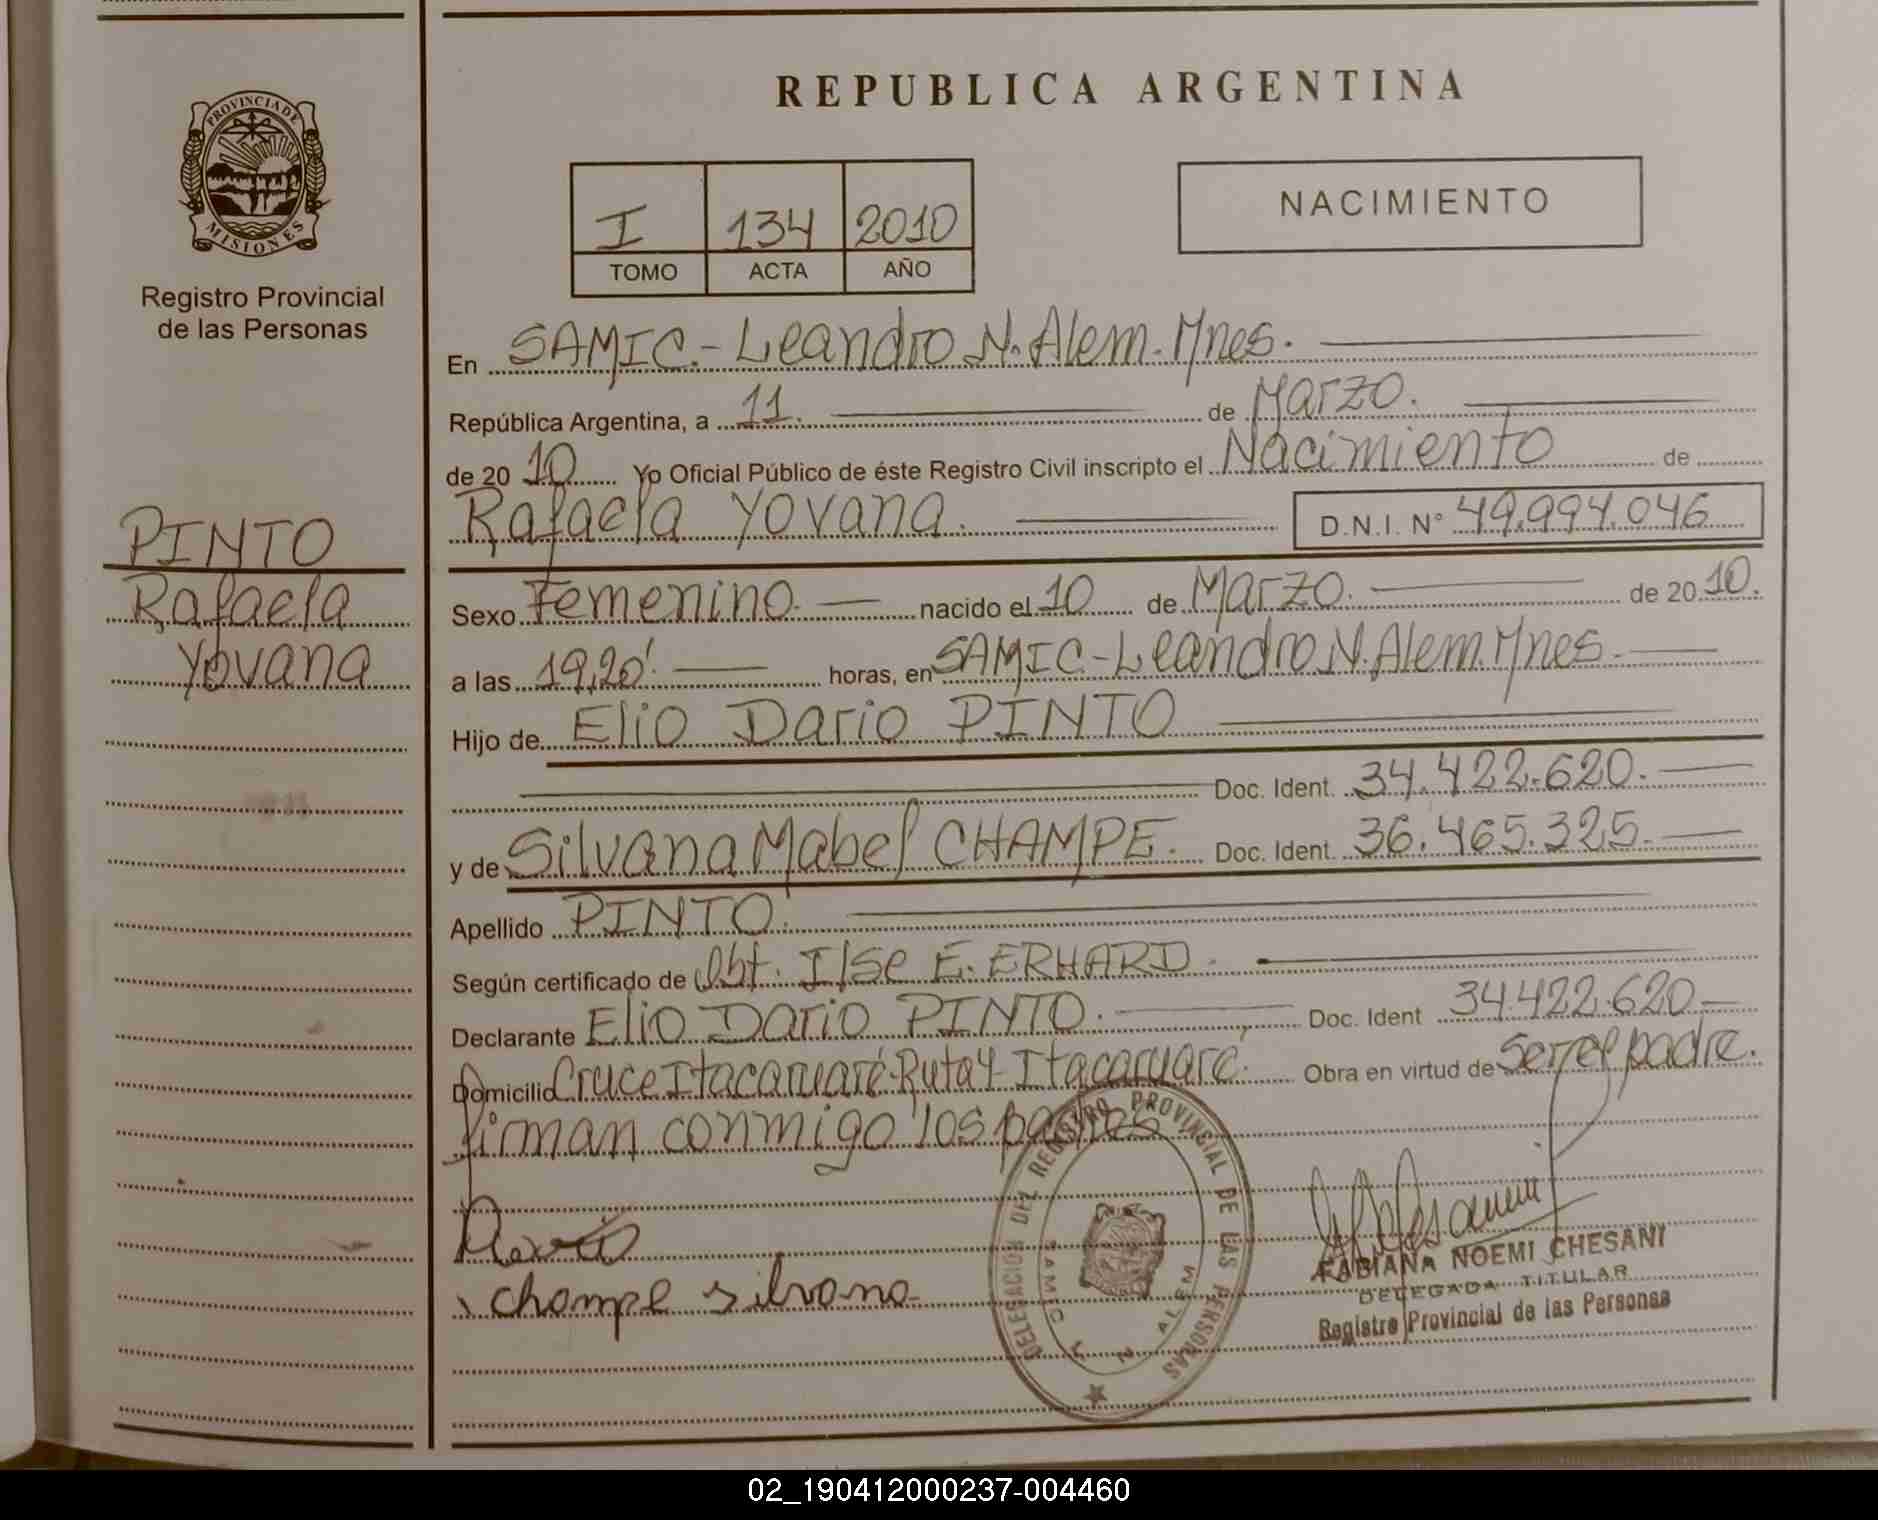 REPUBLICA ARGENTINA
PROVINCIA DE
MISIONES
Registro Provincial
de las Personas
I 134 2010
TOMO ACTA AÑO
NACIMIENTO
En SAMIC.- Leandro N. Alem. Mnes.
República Argentina, a 11. de Marzo.
de 2010 Yo Oficial Público de éste Registro Civil inscripto el Nacimiento de
Rafaela Yovana. D.N.I. N° 49.994.046
PINTO
Rafaela
Yovana
Sexo Femenino. nacido el 10 de Marzo. de 2010.
a las 19,20'. horas, en SAMIC-Leandro N. Alem. Mnes.
Hijo de Elio Dario PINTO
Doc. Ident. 34.422.620.
y de Silvana Mabel CHAMPE. Doc. Ident. 36.465.325.
Apellido PINTO.
Según certificado de Obt. Ilse E. ERHARD.
Declarante Elio Dario PINTO. Doc. Ident 34.422.620
Domicilio Cruce Itacaruaré-Ruta 4-Itacaruaré. Obra en virtud de Ser el padre.
firman conmigo los padres
champe silvana
DELEGACION DEL REGISTRO PROVINCIAL DE LAS PERSONAS
SAMIC L N ALEM
FABIANA NOEMI CHESANI
DELEGADA TITULAR
Registro Provincial de las Personas
02_190412000237-004460